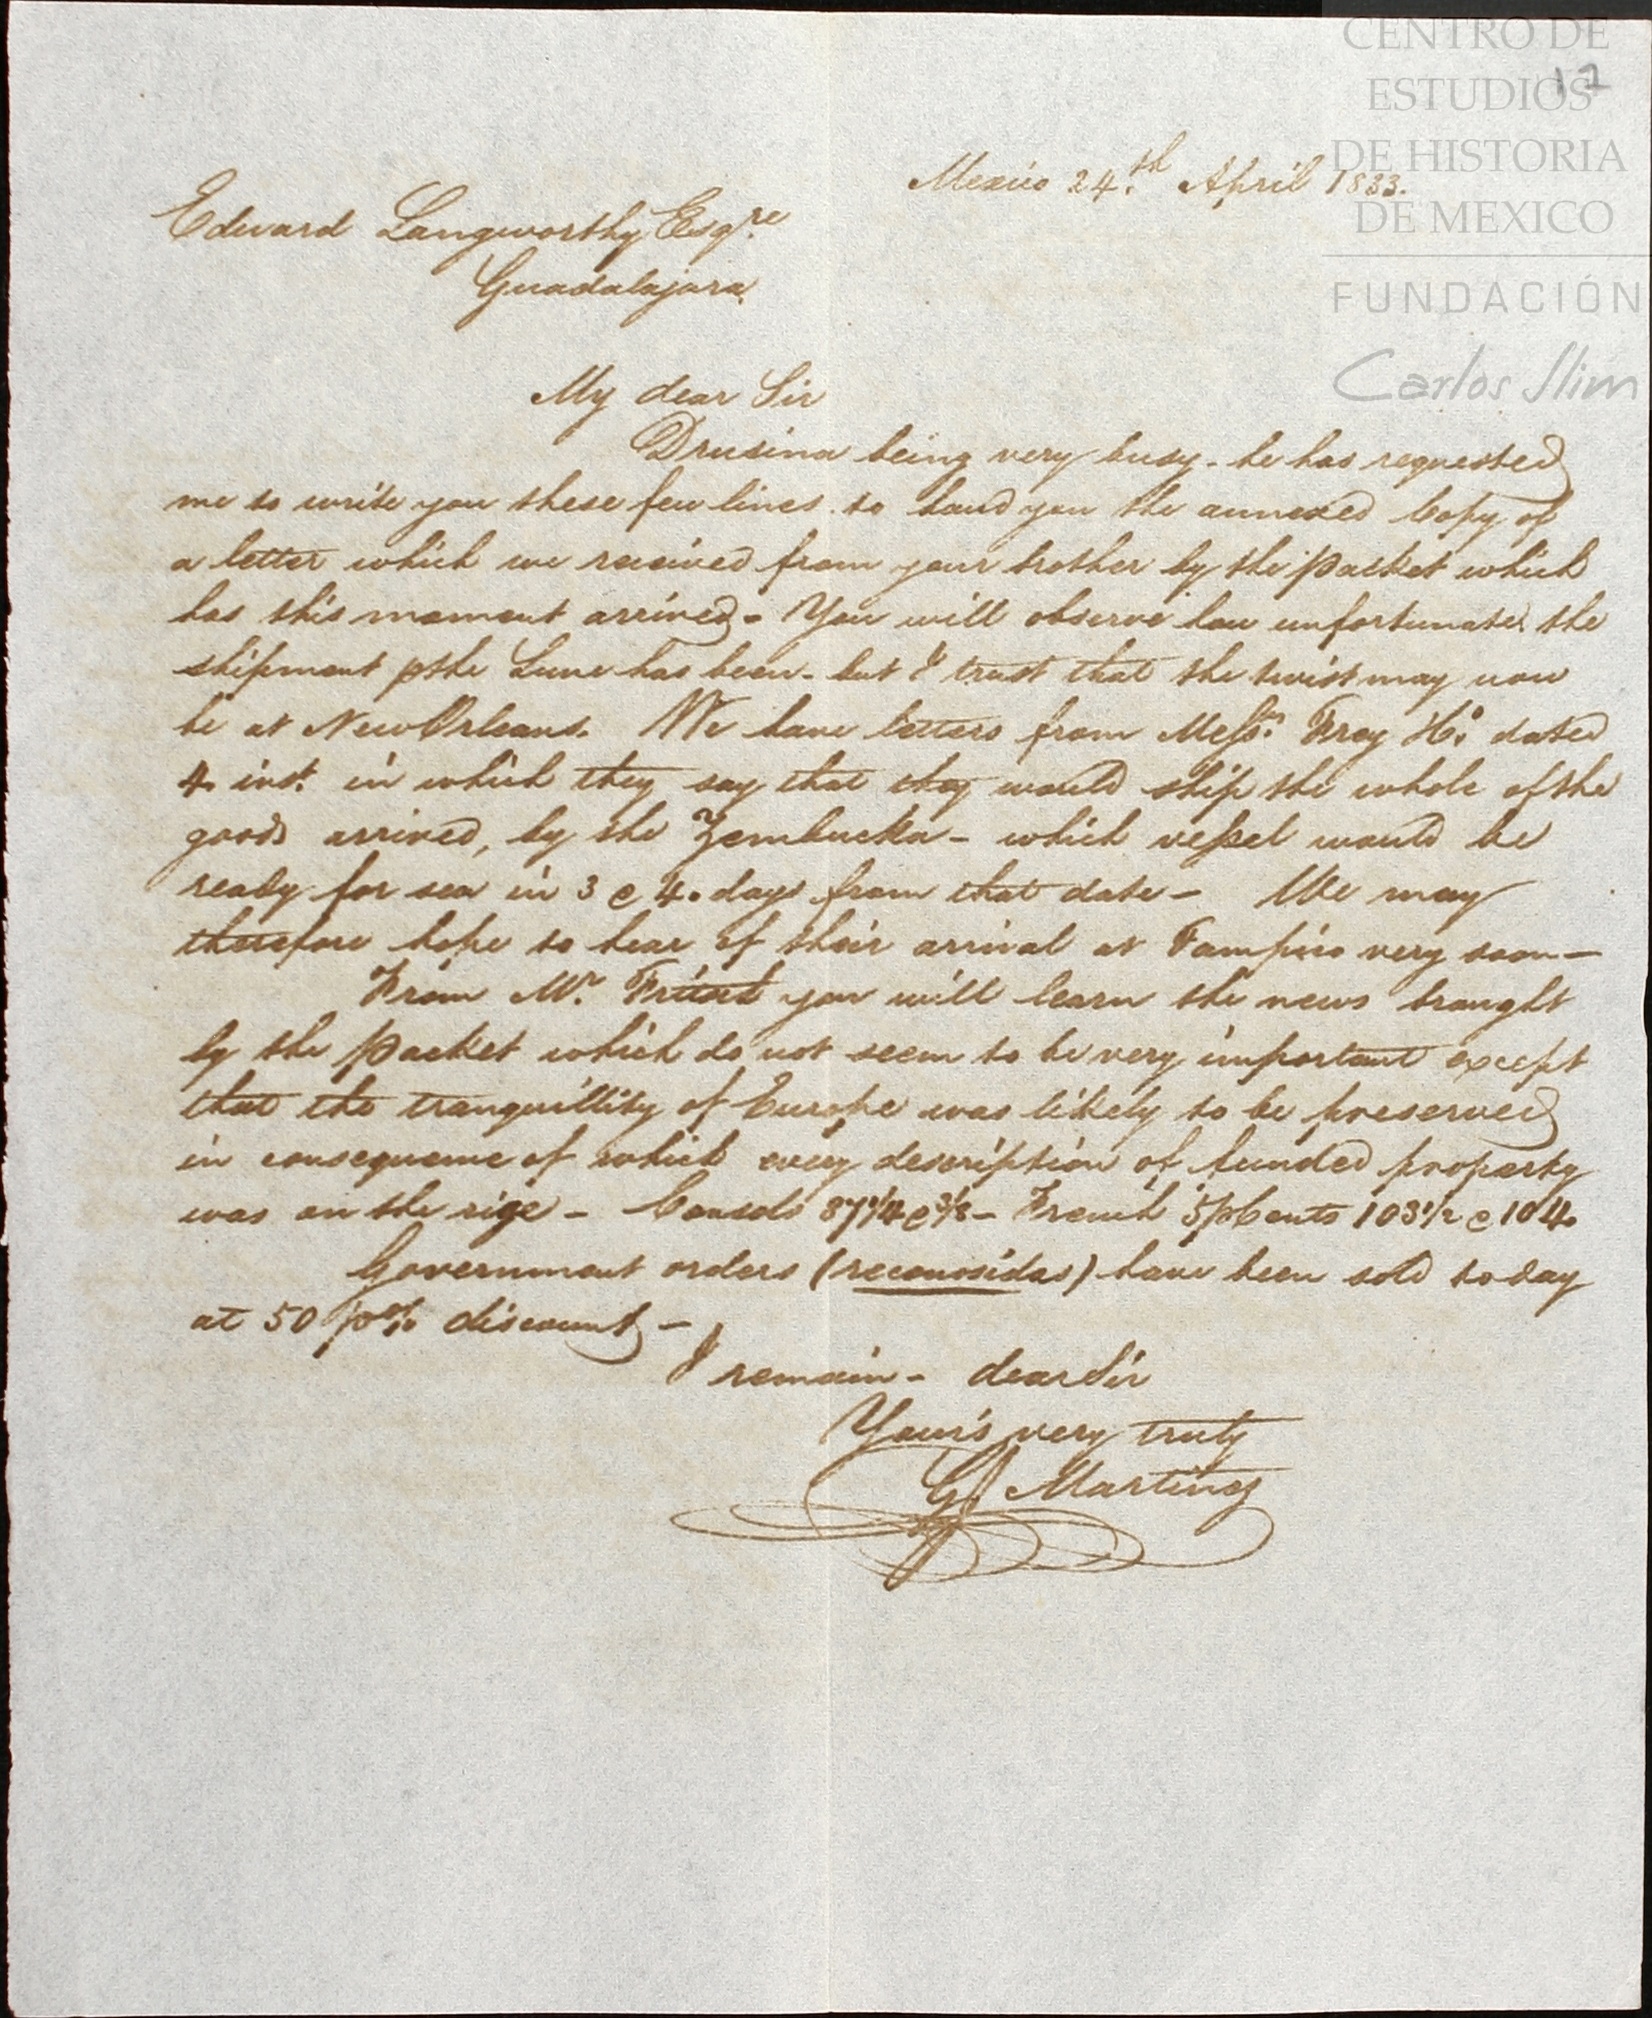 CENTRO DE
ESTUDIOS
DE HISTORIA
DE MEXICO
FUNDACIÓN
Carlos Slim
12
Mexico 24.th April 1833.
Edward Langworthy Esqre
Guadalajara.
My dear Sir
Drusina being very busy - he has requested
me to write you these few lines to hand you the annexed Copy of
a letter which we received from your brother by the packet which
has this moment arrived - You will observe how unfortunate the
shipment p the Lune has been - but I trust that the twist may now
be at New Orleans. We have letters from Messrs. dated
4. inst. in which they say that they would ship the whole of the
goods arrived, by the - which vessel would be
ready for sea in 3 @ 4. days from that date - We may
therefore hope to hear of their arrival at Tampico very soon -
From Mr. you will learn the news brought
by the packet which do not seem to be very important except
that the tranquillity of Europe was likely to be preserved
in consequence of which every description of funded property
was on the rise - Consols 87 1/4 @ 3/8 - French 5 p Cents 103 1/2 @ 104.
Government orders (reconosidas) have been sold to day
at 50 p% discount -
I remain - dear Sir
Your's very truly
G Martinz